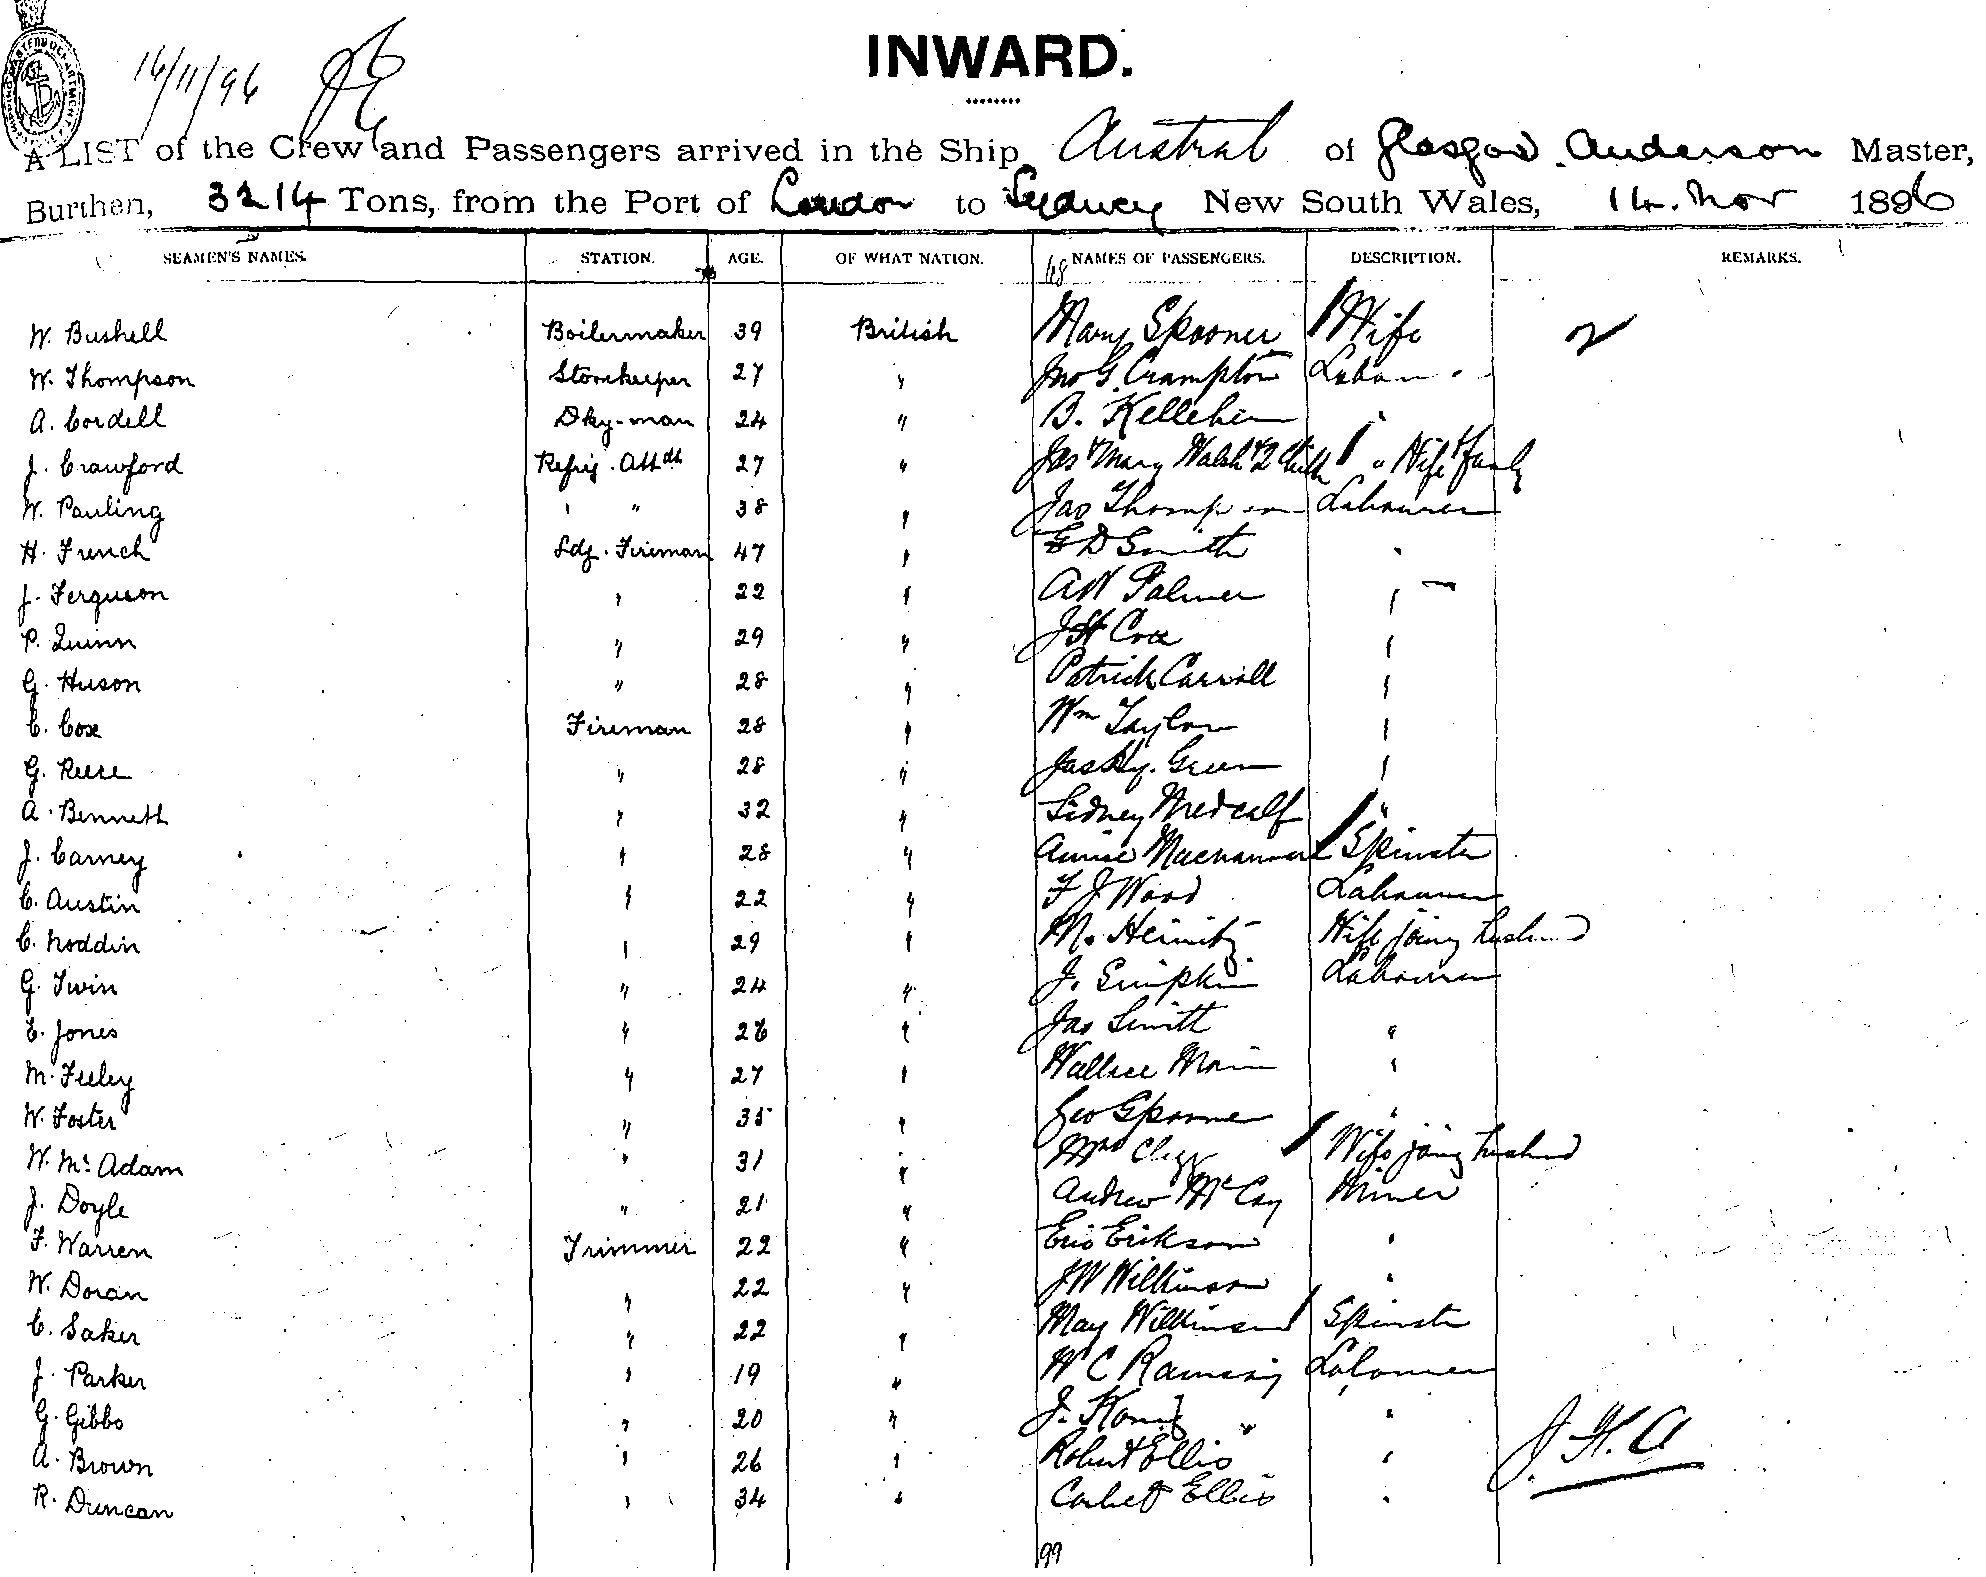 16/11/96
INWARD.
A LIST of the Crew and Passengers arrived in the Ship Austral of Glasgow Anderson Master,
Burthen, 3214 Tons, from the Port of London to Sydney New South Wales, 14. Nov 1896
SEAMEN'S NAMES. STATION. AGE. OF WHAT NATION. 68 NAMES OF PASSENGERS. DESCRIPTION. REMARKS.
W. Bushell Boilermaker 39 British Mary Spooner Wife
W. Thompson Storekeeper 27 " Jno G. Crampton
A. Cordell Dky-man 24 " B. Kelleher "
J. Crawford Refrig. Attdt 27 " Jas & Mary Walsh & 2 " Wife & family
W. Pauling " " 38 " Jas Thompson Labourer
H. French Ldg. Fireman 47 " D Smith "
J. Ferguson " 22 " A W Palmer "
P. Quinn " 29 " J H Cox "
G. Huson " 28 " Patrick Carroll "
C. Cox Fireman 28 " Wm Taylor "
G. Reese " 28 " Jas Hy. Green "
A. Bennett " 32 " Sidney Medcalf "
J. Carney " 28 " Annie Spinster
C. Austin " 22 " F J Wood Labourer
C. Noddin " 29 " M. Wife joing husband
G. Twin " 24 " J. Simpkin Labourer
E. Jones " 26 " Jas "
M. Feeley " 27 " Wallace "
W. Foster " 35 " Geo Spooner "
W. McAdam " 31 " Mrs Clegg Wife joing husband
J. Doyle " 21 " Andrew McCay Miner
F. Warren Trimmer 22 " Eric Erikson "
W. Doran " 22 " J W Wilkinson "
C. Saker " 22 " May Wilkinson Spinster
J. Parker " 19 " W C Ramsay Labourer
G. Gibbs " 20 " J. "
A. Brown " 26 " Robert Ellis " J. H. A
R. Duncan " 34 " Corbet Ellis "
99